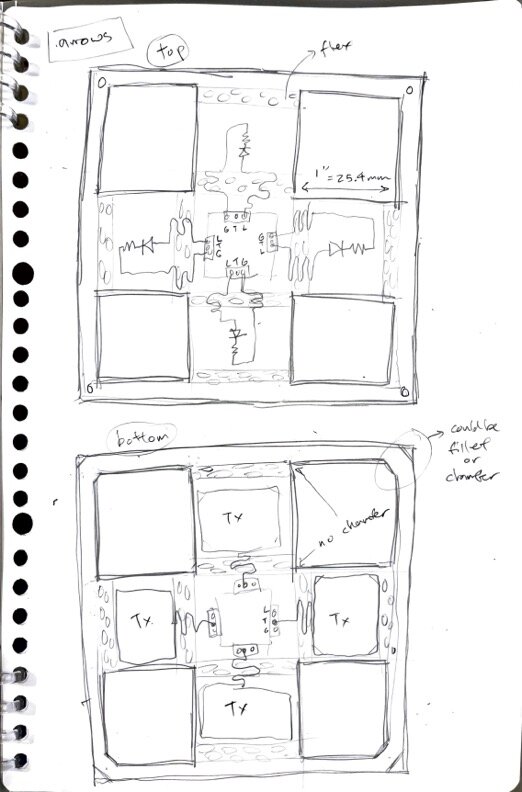 arrows
top
flex
1" = 25.4mm
G T L
L
T
G
G
T
L
L T G
bottom
could be
fillet
or
chamfer
Tx
no chamfer
L
T
G
Tx
Tx
Tx